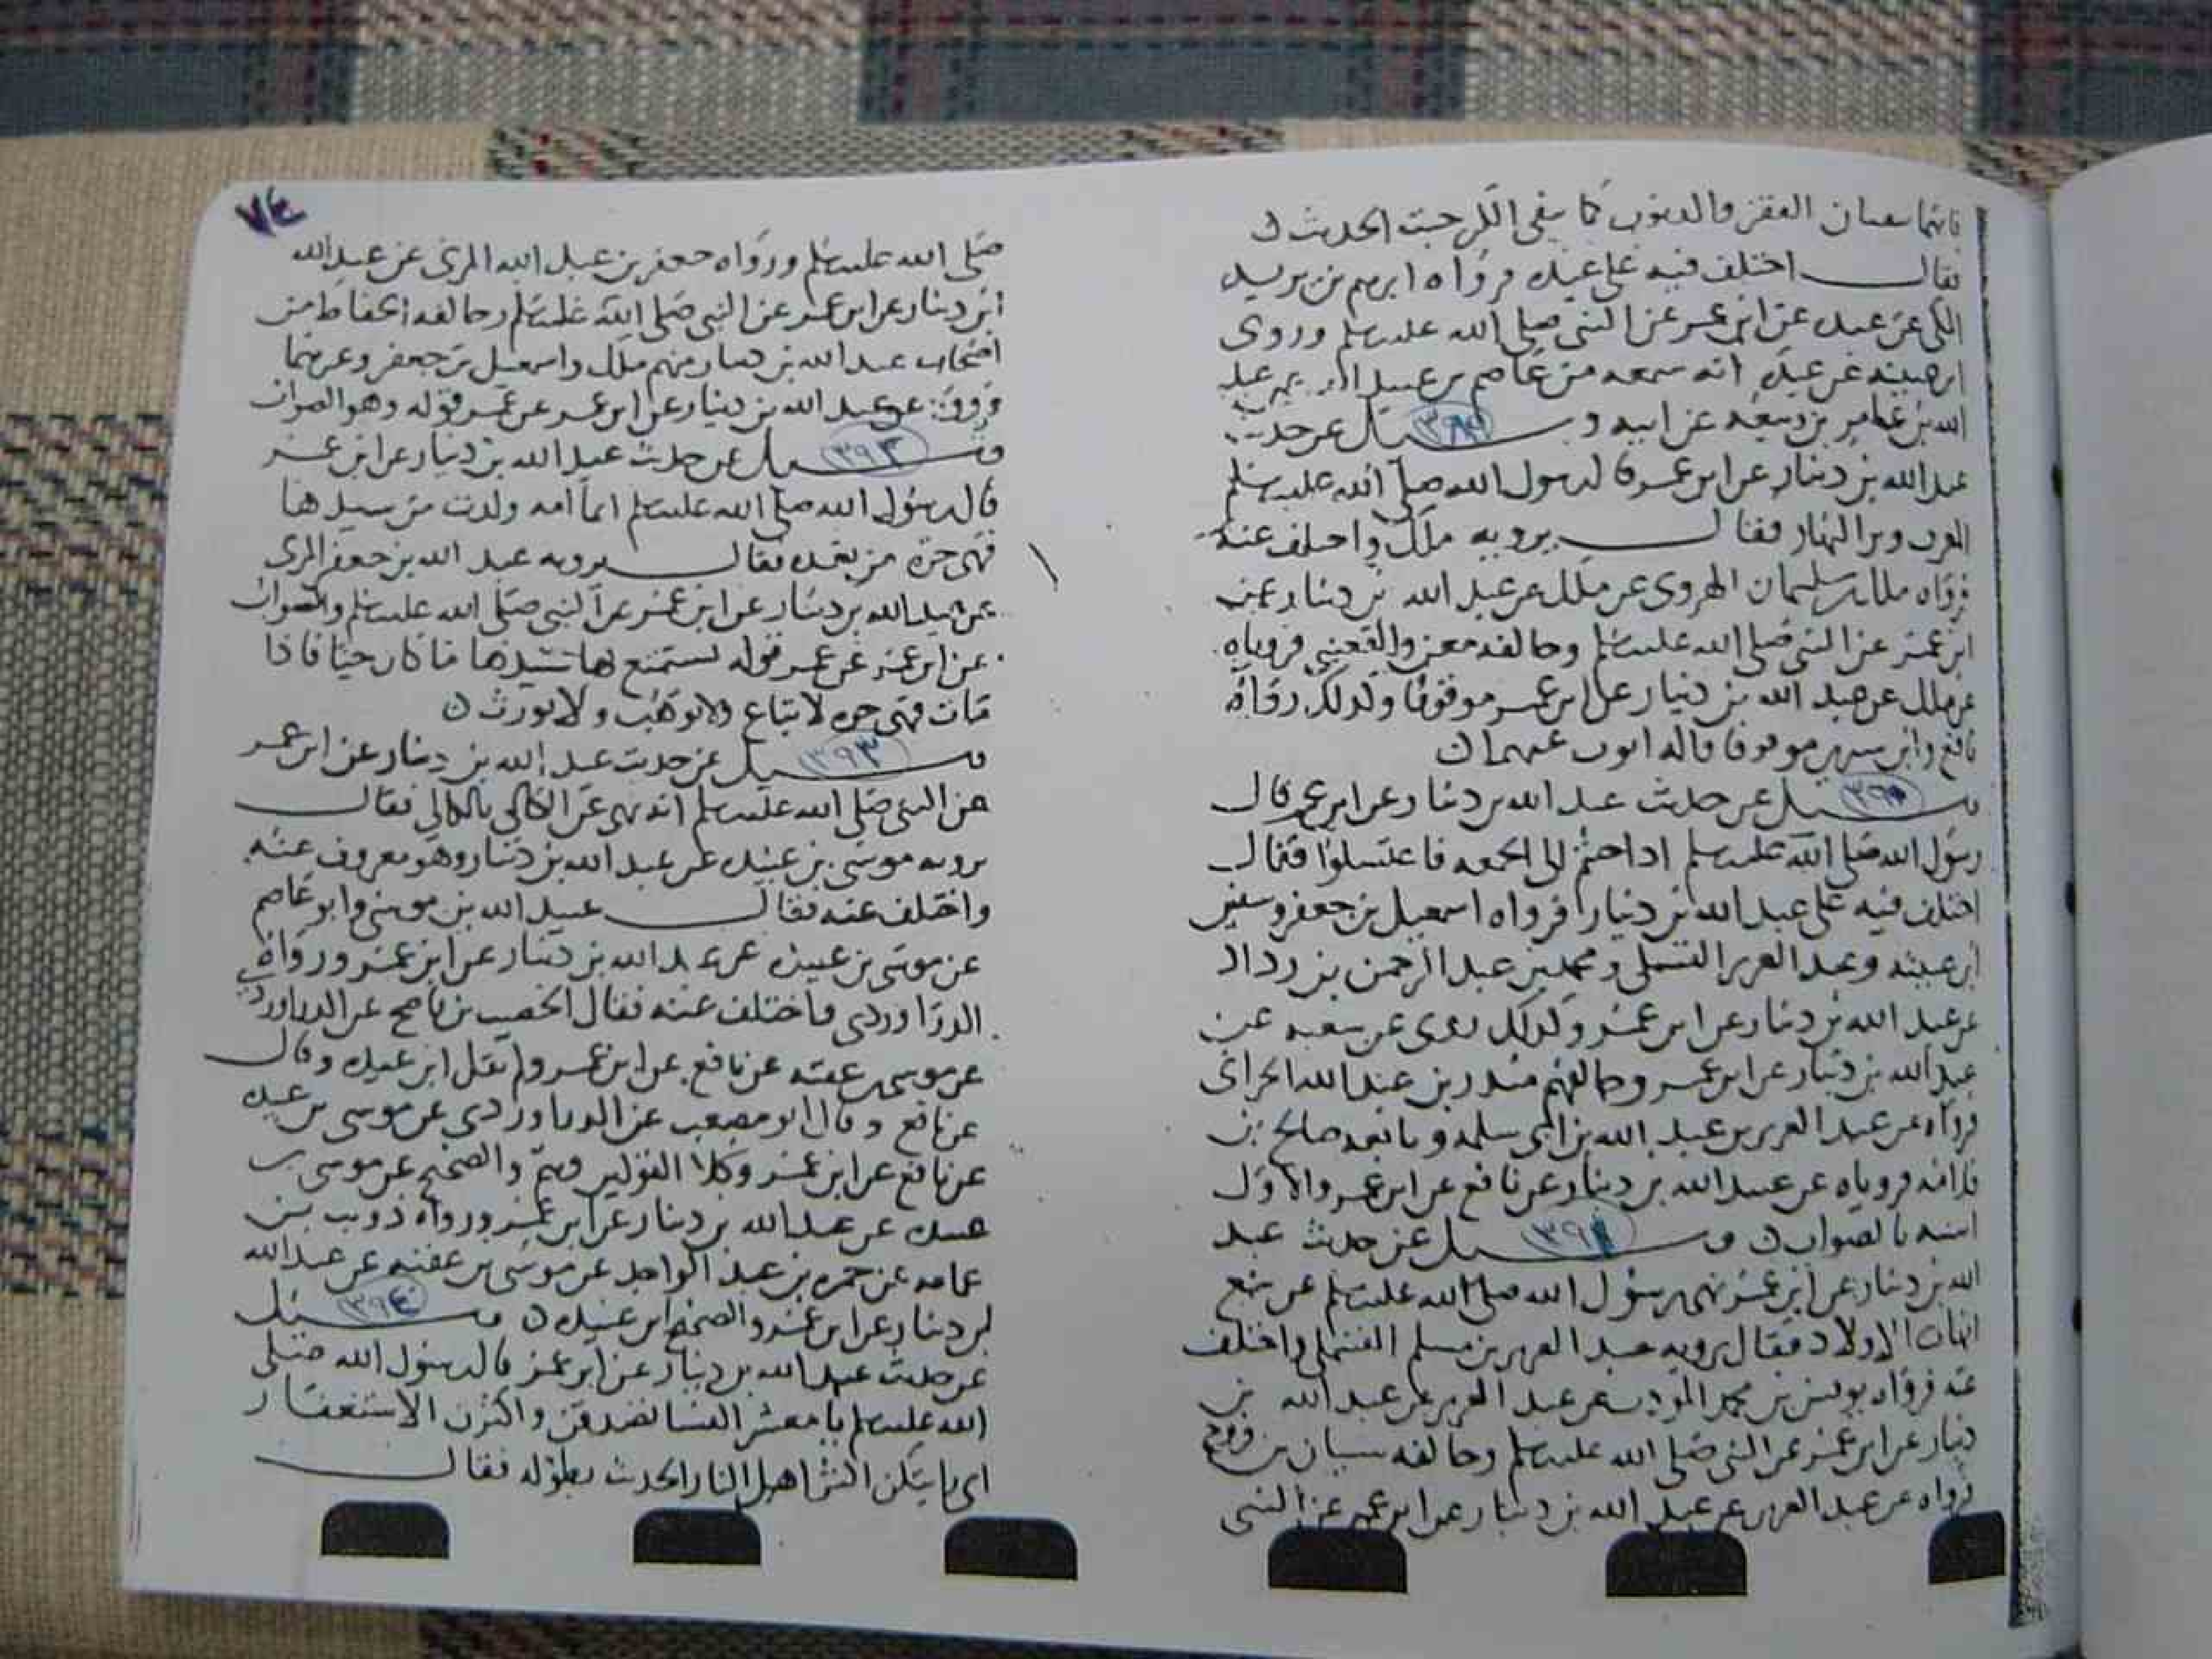 فانهما ينفيان الفقر والذنوب كما ينفي الكير خبث الحديث ن
فقال اختلف فيه على عبدة فرواه ابرهيم بن يزيد
المكي عن عبدة عن ابن عمر عن النبي صلى الله عليه وسلم وروى
ابن عيينة عن عبدة انه سمعه من عاصم بن عبيد الله عن عبد
الله بن عامر بن ربيعة عن ابيه وسئل عن حديث
عبد الله بن دينار عن ابن عمر قال رسول الله صلى الله عليه وسلم
المغرب وتر النهار فقال يرويه ملك واختلف عنه
فرواه ملك بن سليمان الهروي عن ملك عن عبد الله بن دينار عن
ابن عمر عن النبي صلى الله عليه وسلم وخالفه معن والقعنبي فروياه
عن ملك عن عبد الله بن دينار عن ابن عمر موقوفا وكذلك رواه
نافع وابن سيرين موقوفا قاله ايوب عنهما ن
٣٩٠
وسئل عن حديث عبد الله بن دينار عن ابن عمر قال
رسول الله صلى الله عليه وسلم اذا جئتم الى الجمعه فاغتسلوا فقال
اختلف فيه على عبد الله بن دينار فرواه اسمعيل بن جعفر وسفين
ابن عيينه وعبد العزيز القسملي ومحمد بن عبد الرحمن بن رداد
عن عبد الله بن دينار عن ابن عمر وكذلك روى عن شعبه عن
عبد الله بن دينار عن ابن عمر وخالفهم عبد الله الحراني
فرواه عن عبد العزيز بن عبد الله بن ابي سلمه وتابعه صالح بن
قدامه فروياه عن عبد الله بن دينار عن نافع عن ابن عمر والاول
اشبه بالصواب ن وسئل عن حديث عبد
٣٩١
الله بن دينار عن ابن عمر نهى رسول الله صلى الله عليه وسلم عن بيع
امهات الاولاد فقال يرويه عبد العزيز بن مسلم القسملي واختلف
عنه فرواه يونس بن محمد المودب عن عبد العزيز عن عبد الله بن
دينار عن ابن عمر عن النبي صلى الله عليه وسلم وخالفه شيبان بن فروخ
فرواه عن عبد العزيز عن عبد الله بن دينار عن ابن عمر عن النبي
٧٤
صلى الله عليه وسلم ورواه جعفر بن عبد الله المزني عن عبد الله
ابن دينار عن ابن عمر عن النبي صلى الله عليه وسلم وخالفه الحفاظ من
اصحاب عبد الله بن دينار منهم ملك واسمعيل بن جعفر وغيرهما
فرووه عن عبد الله بن دينار عن ابن عمر عن عمر قوله وهو الصواب
وسئل عن حديث عبد الله بن دينار عن ابن عمر
قال رسول الله صلى الله عليه وسلم ايما امه ولدت من سيدها
فهي حرة من بعده فقال يرويه عبد الله بن جعفر المدني
عن عبد الله بن دينار عن ابن عمر عن النبي صلى الله عليه وسلم والصواب
عن ابن عمر عن عمر قوله يستمتع بها سيدها ما كان حيا فاذا
مات فهي حره لا تباع ولا توهب ولا تورث ن
٣٩٣
وسئل عن حديث عبد الله بن دينار عن ابن عمر
عن النبي صلى الله عليه وسلم انه نهى عن الكالي بالكالي فقال
يرويه موسى بن عبيده عن عبد الله بن دينار وهو معروف عنه
واختلف عنه فقال عبيد الله بن موسى وابو عاصم
عن موسى بن عبيده عن عبد الله بن دينار عن ابن عمر ورواه
الدراوردي واختلف عنه فقال الخصيب بن ناصح عن الدراوردي
عن موسى بن عقبه عن نافع عن ابن عمر ولم يقل ابن عبيده وقال
عن نافع وقال ابو مصعب عن الدراوردي عن موسى بن عبيده
عن نافع عن ابن عمر وكلا القولين وهم والصحيح عن موسى بن
عبيده عن عبد الله بن دينار عن ابن عمر ورواه ذويب بن
عمامه عن حمزه بن عبد الواحد عن موسى بن عقبه عن عبد الله
بن دينار عن ابن عمر والصحيح ابن عبيده ن وسئل
٣٩٤
عن حديث عبد الله بن دينار عن ابن عمر قال رسول الله صلى
الله عليه وسلم يا معشر النسا تصدقن واكثرن الاستغفار
اني رايتكن اكثر اهل النار الحديث بطوله فقال